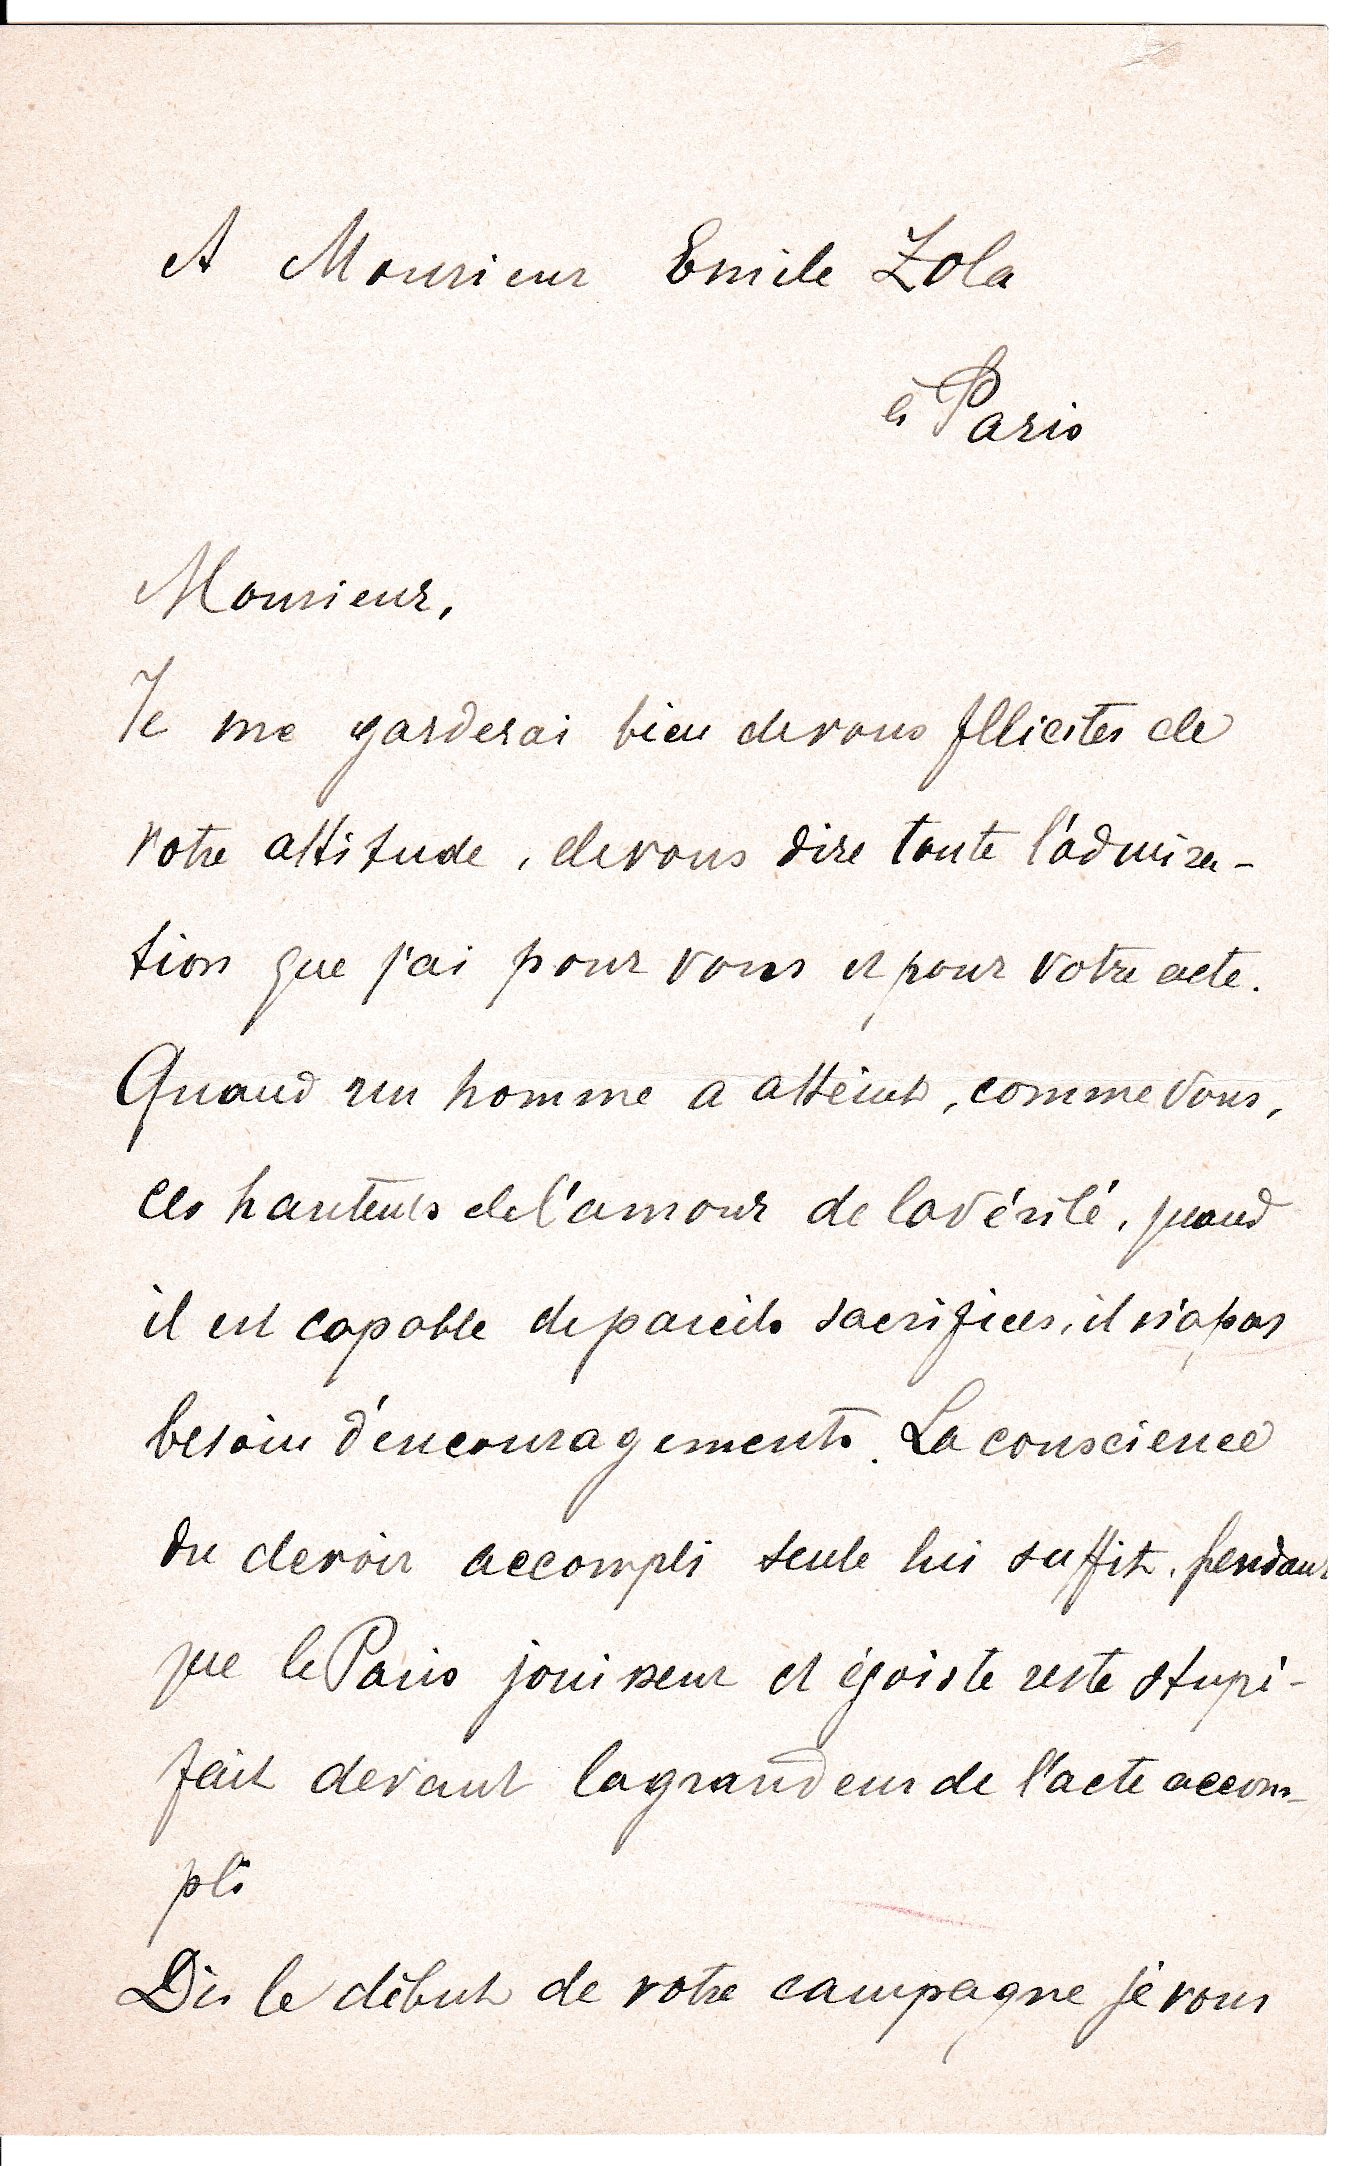 A Monsieur Emile Zola
à Paris
Monsieur,
Je me garderai bien de vous féliciter de
votre attitude, de vous dire toute l'admira-
tion que j'ai pour vous et pour votre acte.
Quand un homme a atteint, comme vous,
ces hauteurs de l'amour de la vérité, quand
il est capable de pareils sacrifices, il n'a pas
besoin d'encouragements. La conscience
du devoir accompli seule lui suffit, pendant
que le Paris jouisseur et égoiste reste stupé-
fait devant la grandeur de l'acte accom-
pli
Dès le début de votre campagne je vous